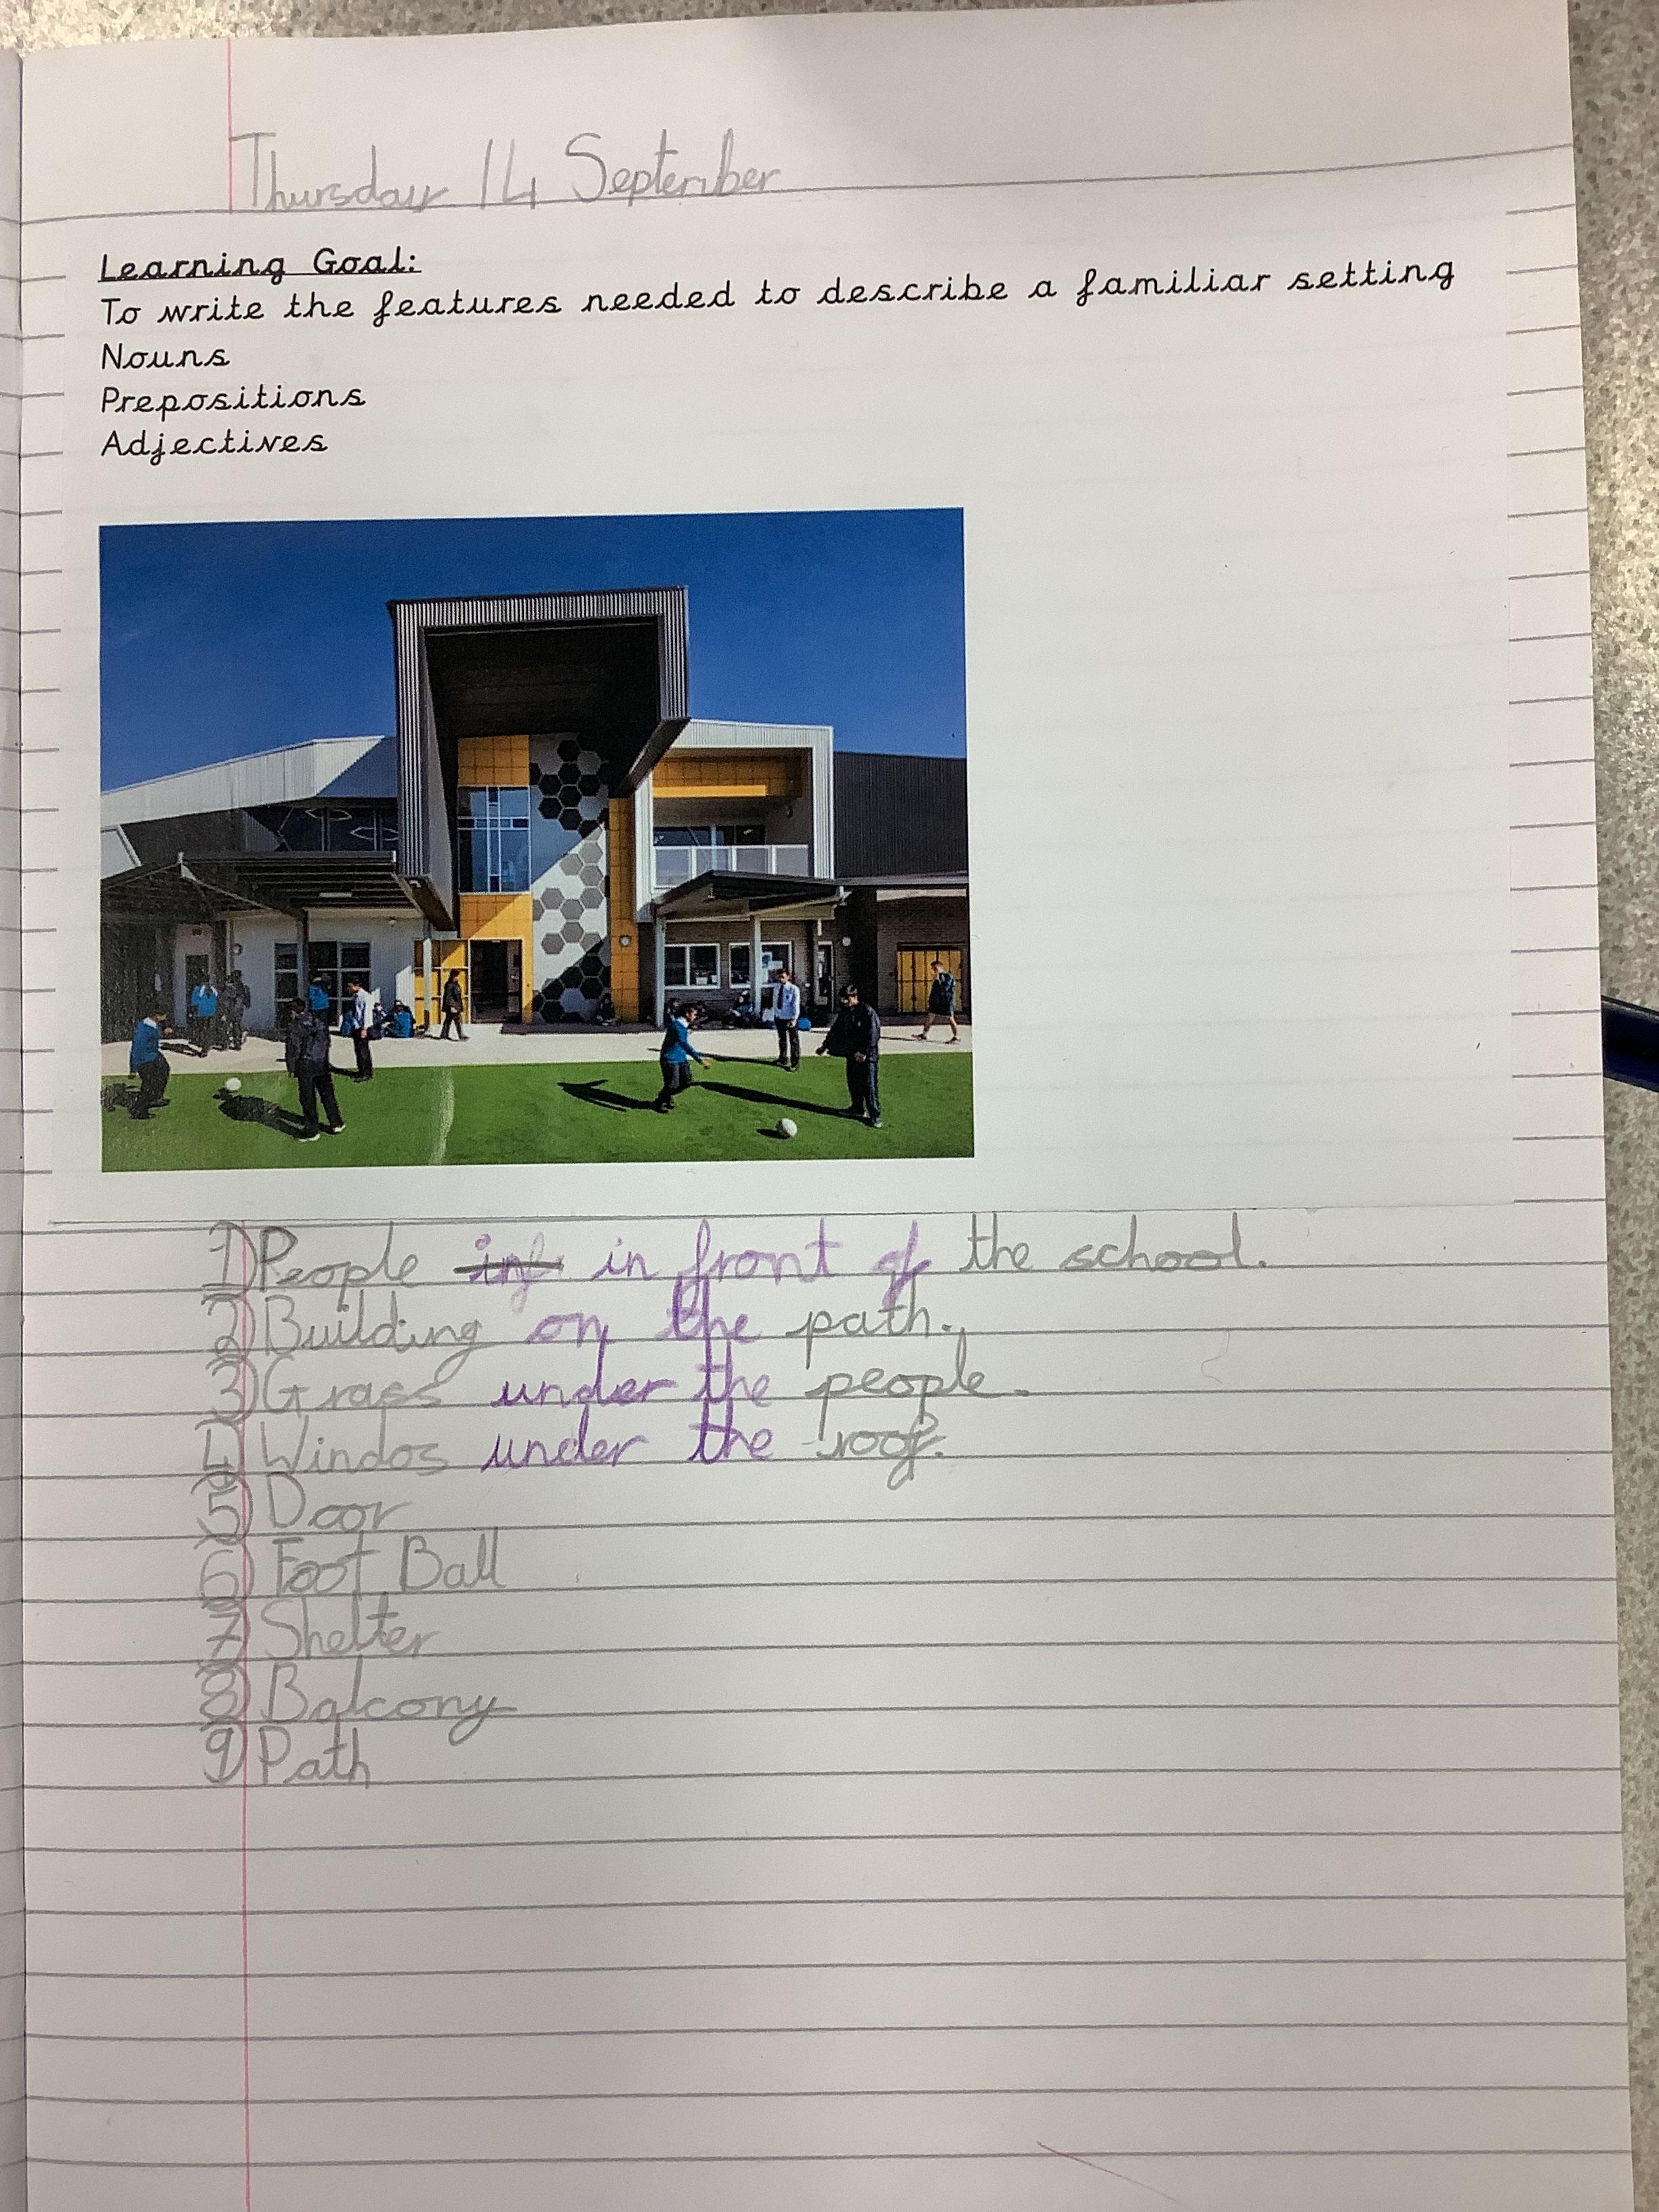 Thursday 14 September
Learning Goal:
To write the features needed to describe a familiar setting
Nouns
Prepositions
Adjectives
1) People inf in front of the school.
2) Building on the path.
3) Grass under the people.
4) Windos under the roof.
5) Door
6) Foot Ball
7) Shelter
8) Balcony
9) Path